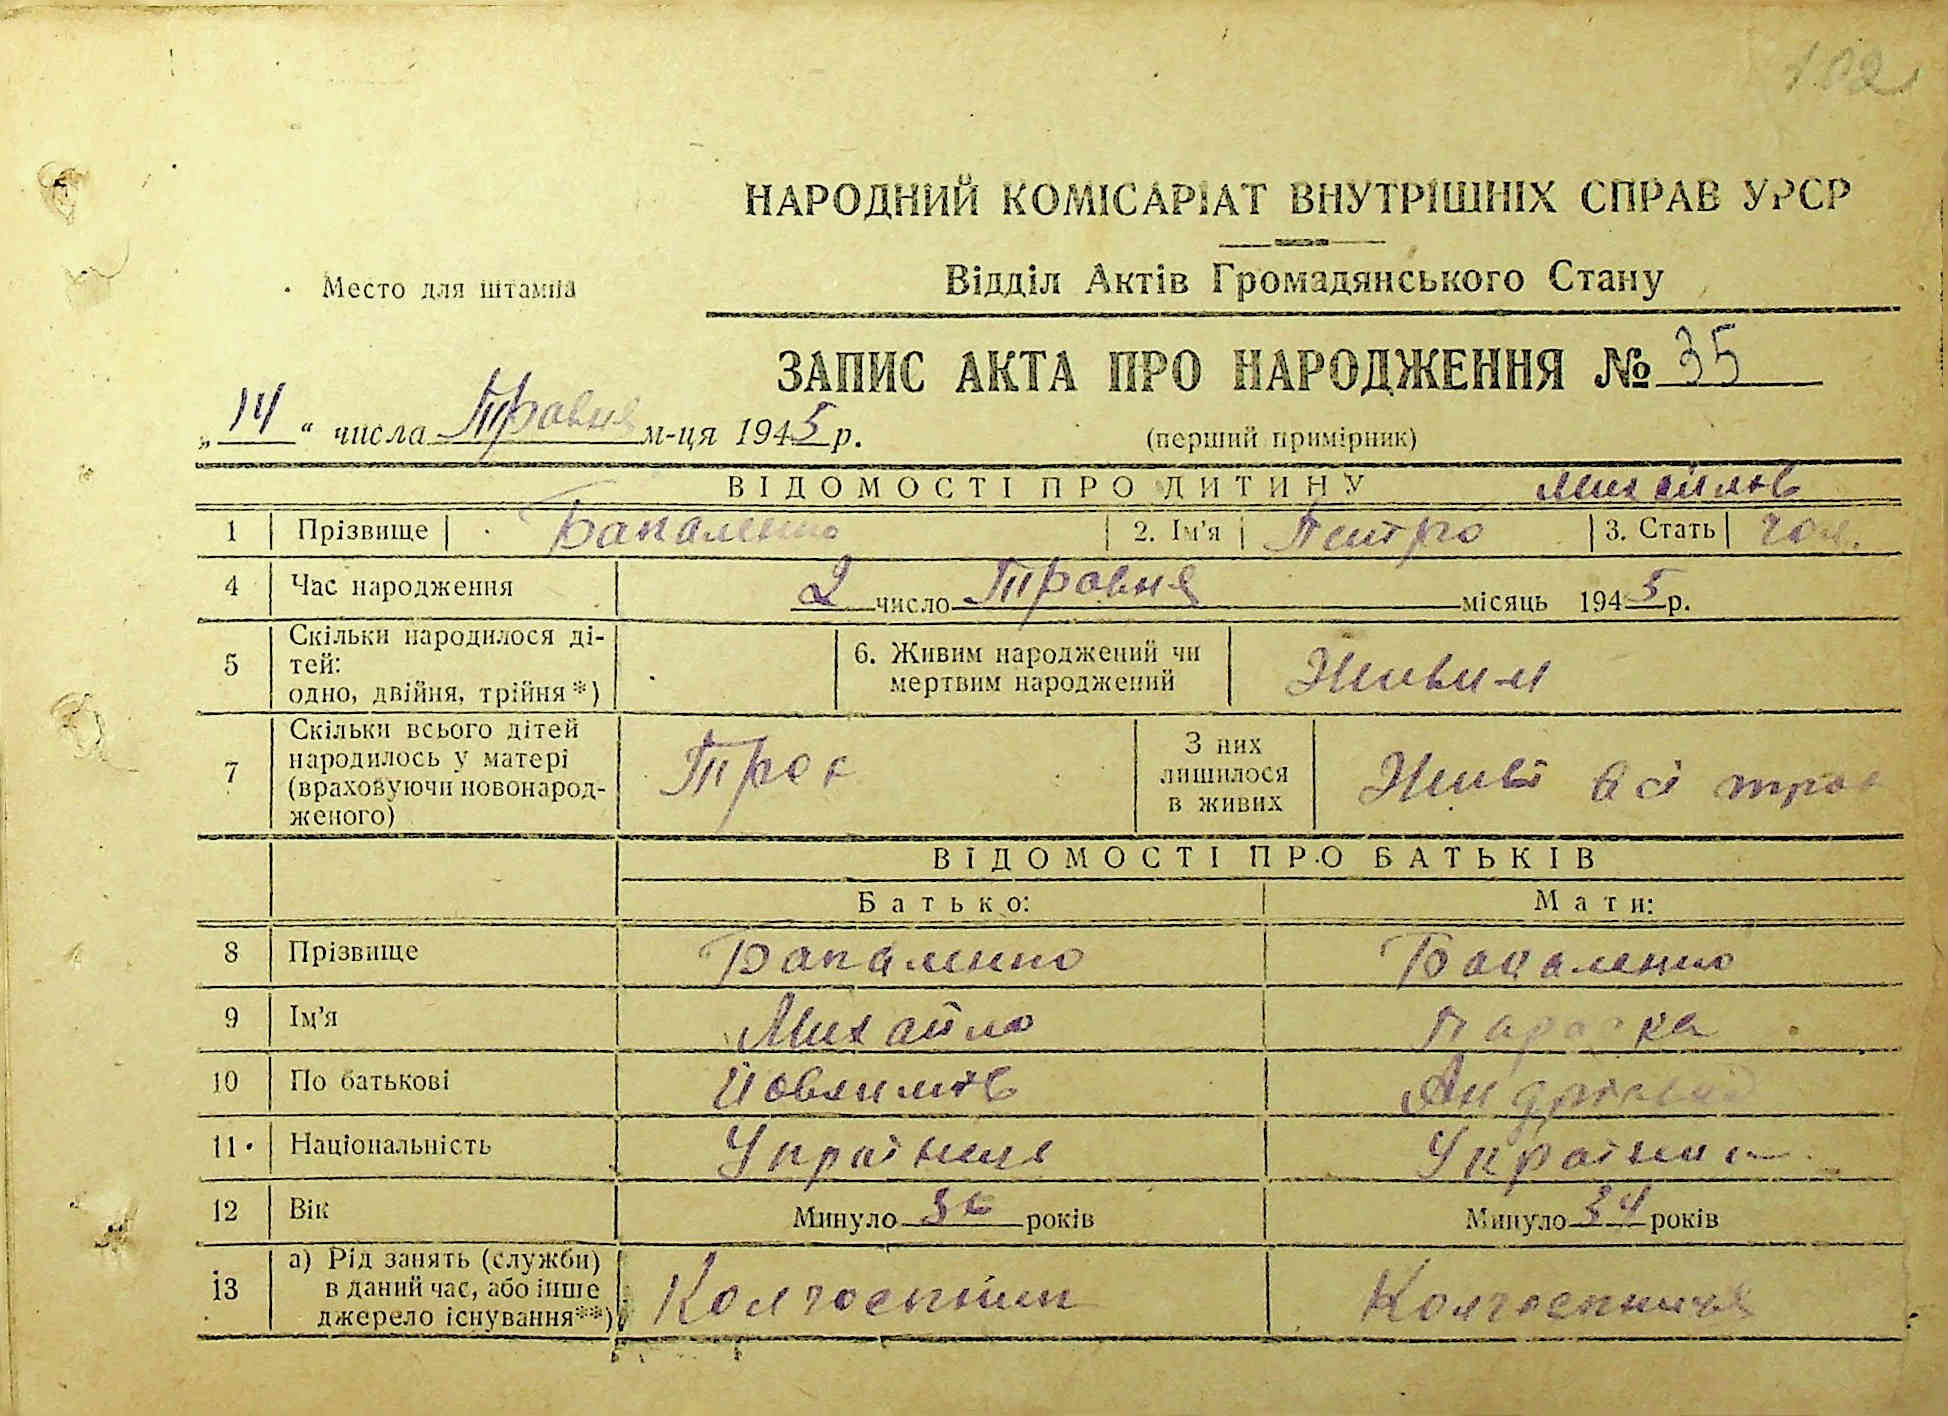 102
НАРОДНИЙ КОМІСАРІАТ ВНУТРІШНІХ СПРАВ УРСР
Место для штампа
Відділ Актів Громадянського Стану
ЗАПИС АКТА ПРО НАРОДЖЕННЯ № 35
„14“ числа Травня м-ця 1945 р.
(перший примірник)
ВІДОМОСТІ ПРО ДИТИНУ Михайлов
1 Прізвище Бакаленко 2. Ім'я Пентро 3. Стать чол.
4 Час народження 2 число Травня місяць 1945 р.
5 Скільки народилося ді-
тей:
одно, двійня, трійня*)
6. Живим народжений чи
мертвим народжений
Живим
7 Скільки всього дітей
народилось у матері
(враховуючи новонарод-
женого)
Троє
З них
лишилося
в живих
Живі всі троє
ВІДОМОСТІ ПРО БАТЬКІВ
Батько: Мати:
8 Прізвище Бакаленко Бакаленко
9 Ім'я Михайло Параска
10 По батькові
11 Національність Українець
12 Вік Минуло 36 років Минуло 34 років
13 а) Рід занять (служби)
в даний час, або інше
джерело існування**)
Колгоспник Колгоспниця